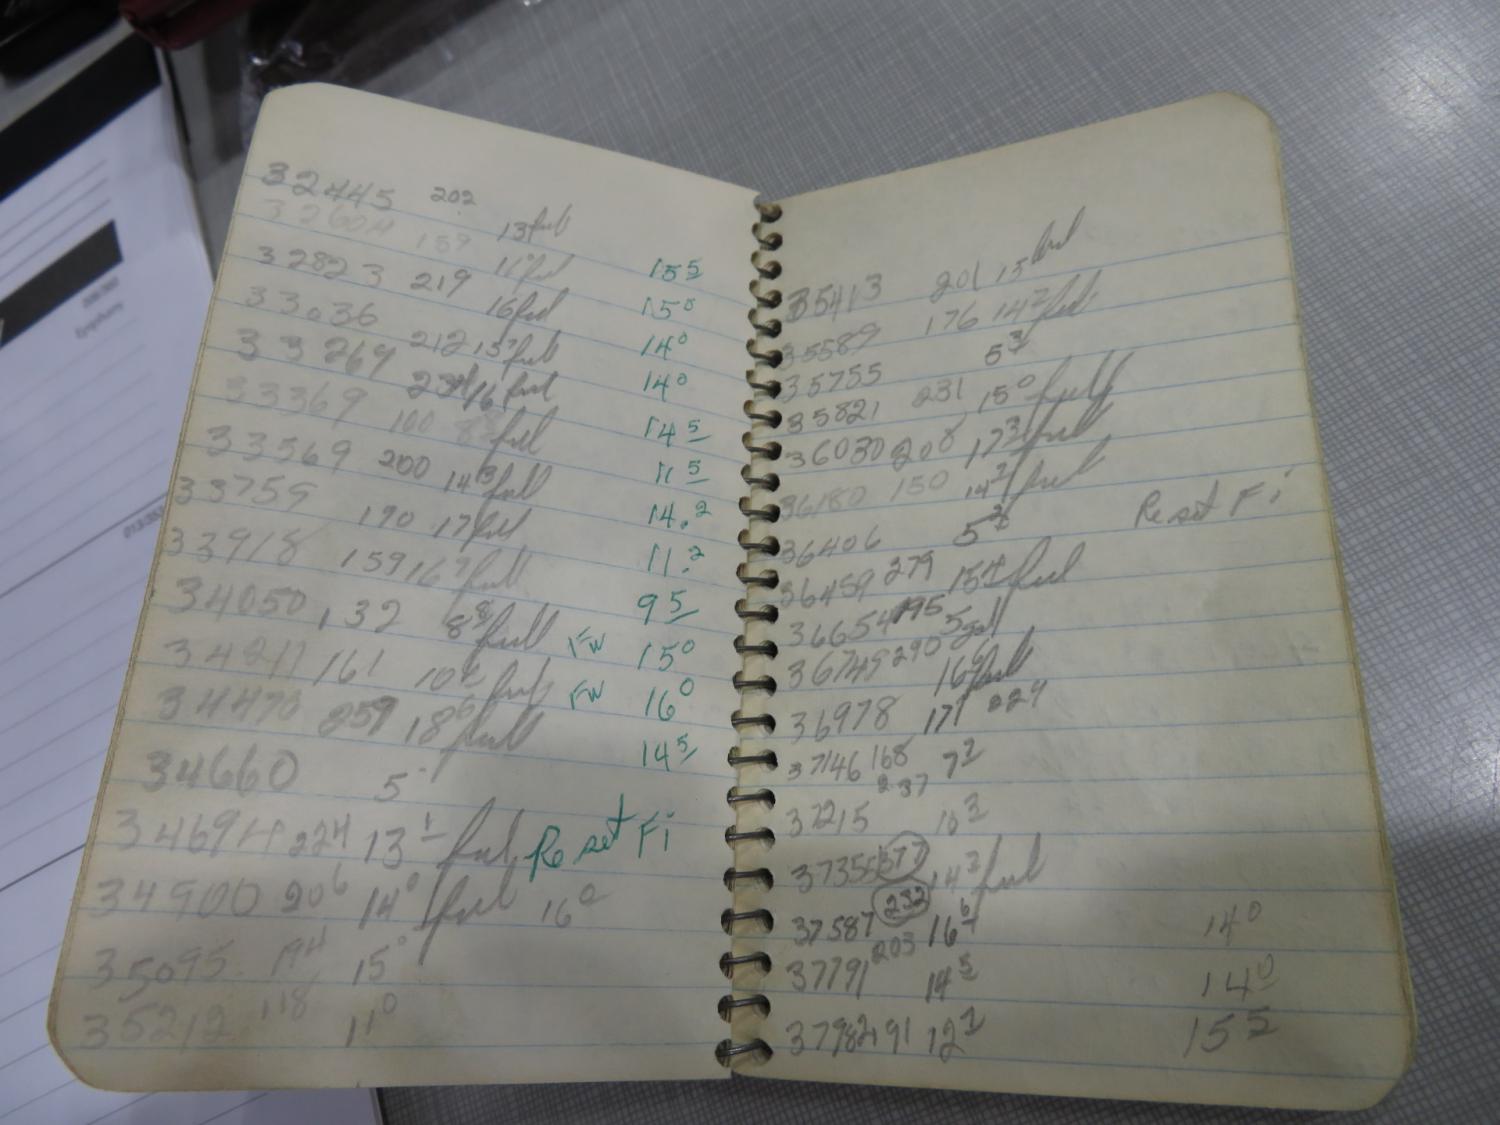 32445 202
32604 159 13 full
32823 219 11 full 15 5
33036 16 full 15 0
33269 212 13 full 14 0
33369 16 full 14 0
33569 100 8 full 14 5
33759 200 14 full 11 5
33918 190 17 full 14.2
34050 159 16 full 11.2
34211 132 8 8 full 9 5
34470 161 10 full FW 15 0
34660 259 18 full FW 16 0
5 14 5
34694 224 13 1 full Re set Fi
34900 206 14 0 full 16 0
35095 194 15
35212 118 11 0
35413 201 15 full
35589 176 14 2 full
35755 5 3
35821 231 15 0 full
36030 208 17 3 full
36180 150 14 full
36406 5 Re set Fi
36459 279 15 4 full
36654 195 5 gal
36749 290 16 full
36978 17 1 229
37146 168 7 2
37215 237 10 3
37355 377 14 3 full
37587 232 16 6 14 0
37791 203 14 5 14 0
37982 191 12 2 15 5